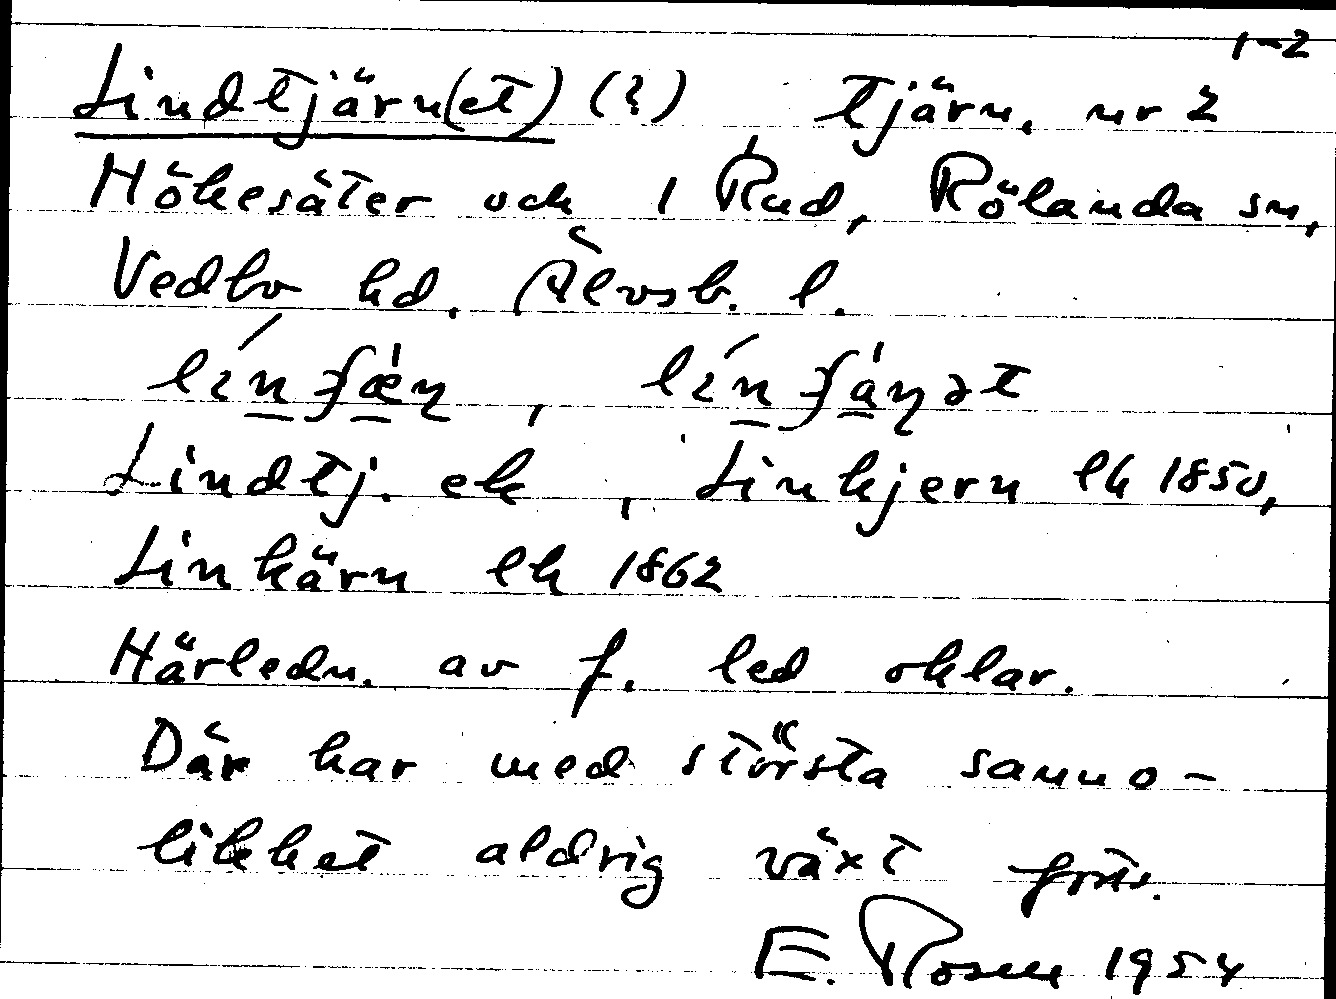 1-2
Lindtjärn(et) (?) tjärn, nr 2
Hökesäter och 1 Rud, Rölanda sn,
Vedbo hd. Älvsb. l.
Lindtj. ek, Linkjern lh 1850,
Linkärn lh 1862
Härledn. av f. led oklar.
Där har med största sanno-
likhet aldrig växt
E. Rosell 1954